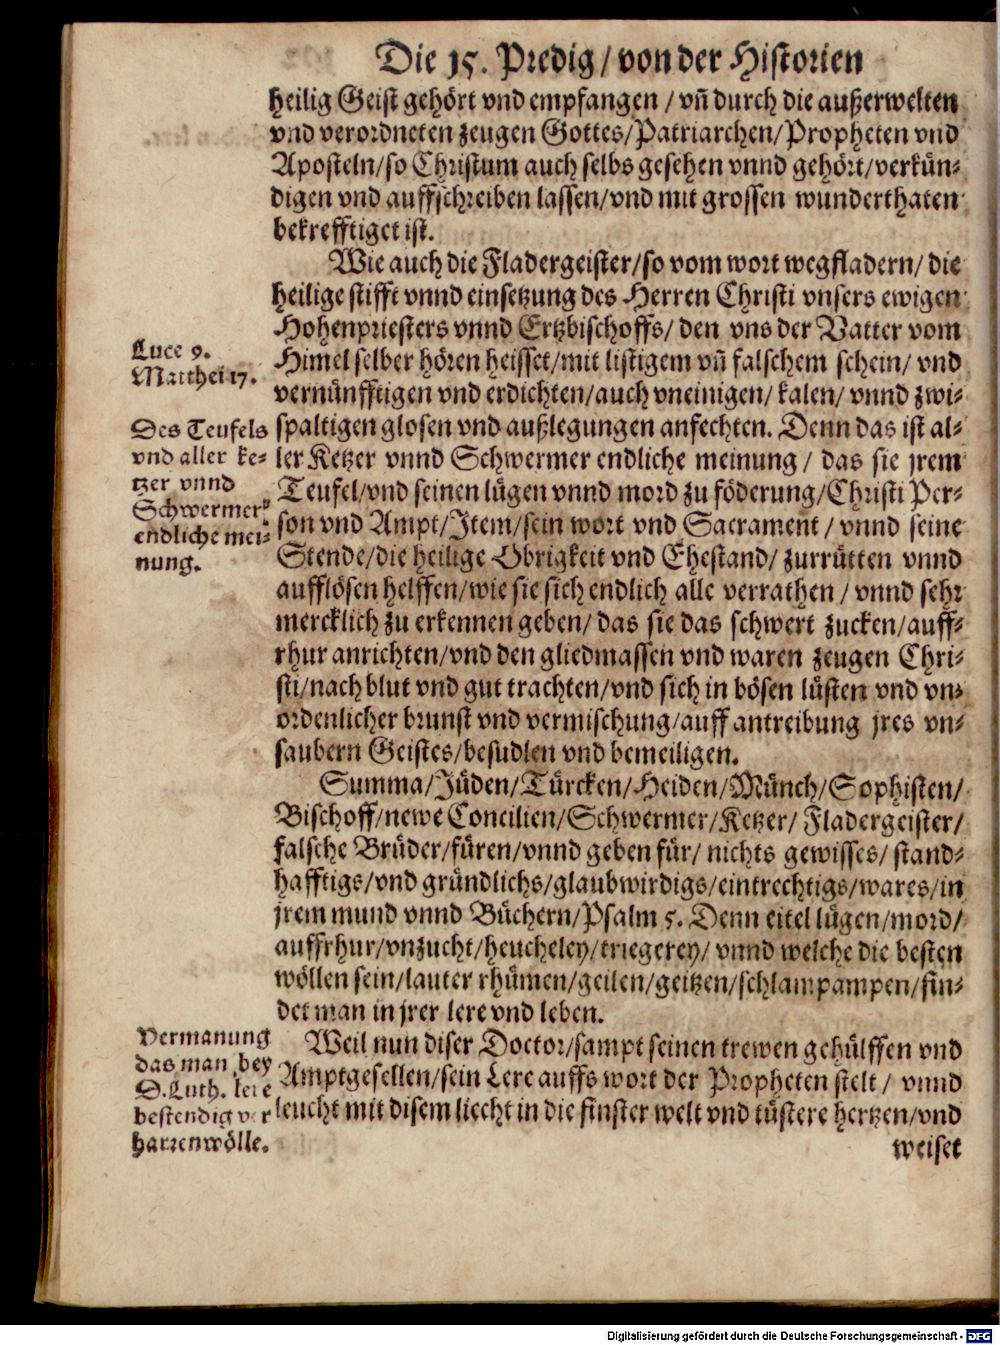 Die 15. Predig / von der Historien
heilig Geist gehört vnd empfangen / vñ durch die außerwelten
vnd verordneten zeugen Gottes/Patriarchen/Propheten vnd
Aposteln/so Christum auch selbs gesehen vnnd gehört/verkün-
digen vnd auffschreiben lassen/vnd mit grossen wunderthaten
bekrefftiget ist.
Wie auch die Fladergeister/so vom wort wegfladern/ die
heilige stifft vnnd einsetzung des Herren Christi vnsers ewigen
Hohenpriesters vnnd Ertzbischoffs/ den vns der Vatter vom
Luce 9.
Matthei 17.
Himel selber hören heisset/mit listigem vñ falschem schein/ vnd
vernünfftigen vnd erdichten/auch vneinigen/ kalen/ vnnd zwi-
Des Teufels
vnd aller ke-
tzer vnnd
Schwermer
endliche mei-
nung.
spaltigen glosen vnd außlegungen anfechten. Denn das ist al-
ler Ketzer vnnd Schwermer endliche meinung / das sie jrem
Teufel/vnd seinen lügen vnnd mord zu föderung/Christi Per-
son vnd Ampt/Item/sein wort vnd Sacrament / vnnd seine
Stende/die heilige Obrigkeit vnd Ehestand/ zurrütten vnnd
aufflösen helffen/wie sie sich endlich alle verrathen / vnnd sehr
mercklich zu erkennen geben/ das sie das schwert zucken/auff-
rhur anrichten/vnd den gliedmassen vnd waren zeugen Chri-
sti/nach blut vnd gut trachten/vnd sich in bösen lüsten vnd vn-
ordenlicher brunst vnd vermischung/auff antreibung jres vn-
saubern Geistes/besudlen vnd bemeiligen.
Summa/Jüden/Türcken/Heiden/Münch/Sophisten/
Bischoff/newe Concilien/Schwermer/Ketzer/ Fladergeister/
falsche Brüder/füren/vnnd geben für/ nichts gewisses/ stand-
hafftigs/vnd gründlichs/glaubwirdigs/eintrechtigs/wares/in
jrem mund vnnd Büchern/Psalm 5. Denn eitel lügen/mord/
auffrhur/vnzucht/heucheley/triegerey/ vnnd welche die besten
wöllen sein/lauter rhümen/geilen/geitzen/schlampampen/fin-
det man in jrer lere vnd leben.
Vermanung
das man bey
D. Luth. lere
bestendig ver
harren wölle.
Weil nun diser Doctor/sampt seinen trewen gehülffen vnd
Amptgesellen/sein Lere auffs wort der Propheten stelt / vnnd
leucht mit disem liecht in die finster welt vnd tüstere hertzen/vnd
weiset
Digitalisierung gefördert durch die Deutsche Forschungsgemeinschaft - DFG